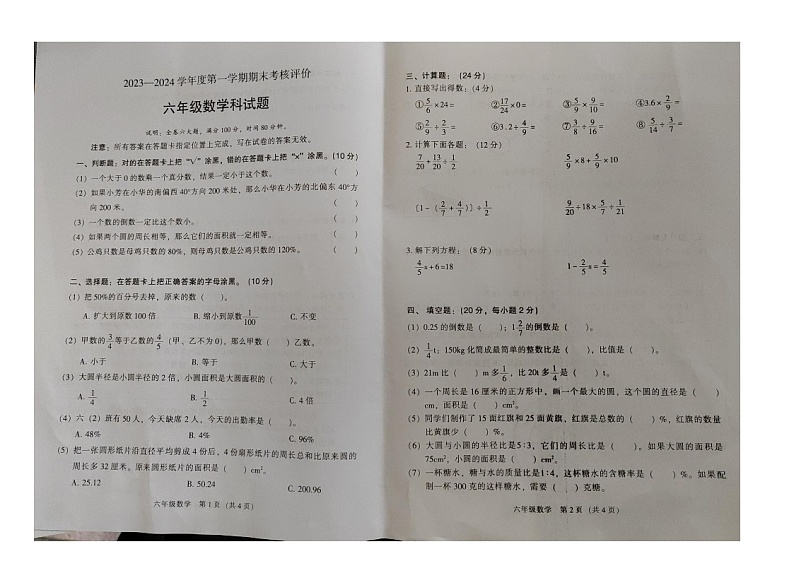 2023—2024 学年度第一学期期末考核评价
六年级数学科试题
说明：全卷六大题，满分 100 分，时间 80 分钟。
注意：所有答案在答题卡指定位置上完成，写在试卷的答案无效。
一、判断题：对的在答题卡上把“√”涂黑，错的在答题卡上把“×”涂黑。(10 分)
（1）一个大于 0 的数乘一个真分数，结果一定小于这个数。（ ）
（2）如果小芳在小华的南偏西 40°方向 200 米处，那么小华在小芳的北偏东 40°方
向 200 米。（ ）
（3）一个数的倒数一定比这个数小。（ ）
（4）如果两个圆的周长相等，那么它们的面积就一定相等。（ ）
（5）公鸡只数是母鸡只数的 80%，则母鸡只数是公鸡只数的 120%。（ ）
二、选择题：在答题卡上把正确答案的字母涂黑。（10 分）
（1）把 50%的百分号去掉，原来的数（ ）。
A. 扩大到原数 100 倍 B. 缩小到原数 1/100 C. 不变
（2）甲数的 3/4 等于乙数的 4/5（甲、乙不为 0），那么甲数（ ）乙数。
A. 小于 B. 等于 C. 大于
（3）大圆半径是小圆半径的 2 倍，小圆面积是大圆面积的（ ）。
A. 1/4 B. 1/2 C. 4 倍
（4）六（2）班有 50 人，今天缺席 2 人，今天的出勤率是（ ）。
A. 48% B. 4% C. 96%
（5）把一张圆形纸片沿直径平均剪成 4 份后，4 份扇形纸片的周长总和比原来圆的
周长多 32 厘米。原来圆形纸片的面积是（ ）cm²。
A. 25.12 B. 50.24 C. 200.96
六年级数学 第 1 页（共 4 页）
三、计算题：（24 分）
1. 直接写出得数：（4 分）
①5/6×24= ②17/24×0= ③5/9×9/10= ④3.6×2/9=
⑤2/9÷2/3= ⑥3.2÷4/9= ⑦3/8÷9/16= ⑧5/14÷3/7=
2. 计算下面各题：（12 分）
7/20+13/20÷1/2 5/9×8+5/9×10
〔1-（2/7+4/7）〕÷1/2 9/20÷18×5/7÷1/21
3. 解下列方程：（8 分）
4/5x+6=18 1-2/5x=4/5
四、填空题：（20 分，每小题 2 分）
（1）0.25 的倒数是（ ）；1 2/7 的倒数是（ ）。
（2）1/4t：150kg 化简成最简单的整数比是（ ），比值是（ ）。
（3）21m 比（ ）m 多 1/6，比 20t 多 1/4 是（ ）t。
（4）一个周长是 16 厘米的正方形中，画一个最大的圆，这个圆的直径是（ ）
cm，面积是（ ）cm²。
（5）同学们制作了 15 面红旗和 25 面黄旗，红旗是总数的（ ）%，红旗的数量
比黄旗少（ ）%。
（6）大圆与小圆的半径比是5∶3，它们的周长比是（ ）。如果大圆的面积是
75cm²，小圆的面积是（ ）cm²。
（7）一杯糖水，糖与水的质量比是1∶4，这杯糖水的含糖率是（ ）%。如果配
制一杯 300 克的这样糖水，需要（ ）克糖。
六年级数学 第 2 页（共 4 页）